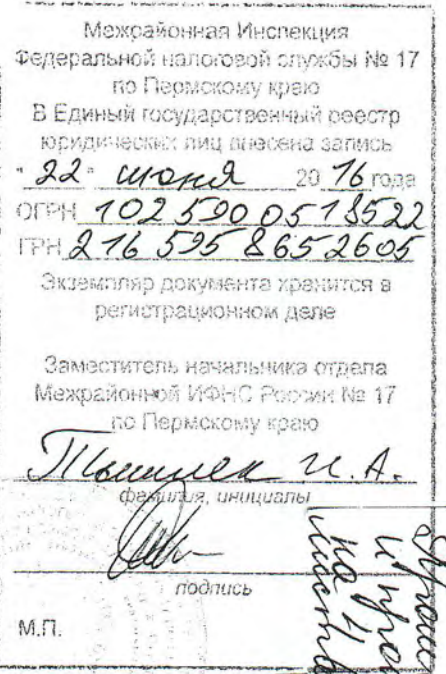 Межрайонная Инспекция
Федеральной налоговой службы № 17
по Пермскому краю
В Единый государственный реестр
юридических лиц внесена запись
"22" июня 2016 года
ОГРН 1025900518522
ГРН 2165958652605
Экземпляр документа хранится в
регистрационном деле
Заместитель начальника отдела
Межрайонной ИФНС России № 17
по Пермскому краю
И. А.
фамилия, инициалы
подпись
М.П.
и про
на 4